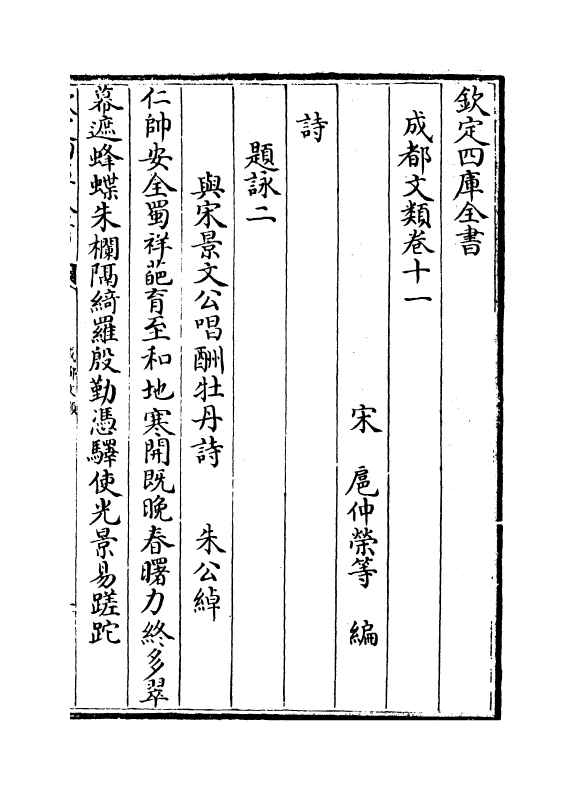 欽定四庫全書
成都文類卷十一
宋 扈仲榮等 編
詩
題詠二
與宋景文公唱酬牡丹詩 朱公綽
仁帥安全蜀祥葩育至和地寒開既晚春曙力終多翠
幕遮蜂蝶朱欄隔綺羅殷勤憑驛使光景易蹉跎